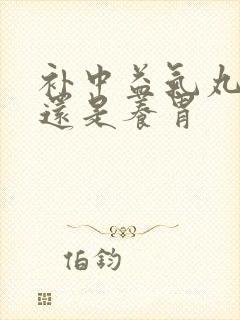 补中益气丸
還是養胃
伯鈞